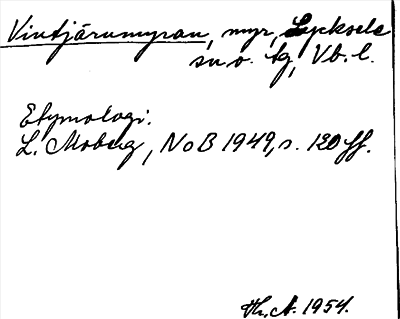 Vintjärumyran, myr, Lycksele
sn o. tg, Vb. l.
Etymologi.
L. Moberg, NoB 1949, s. 120 ff.
Th. A. 1954.